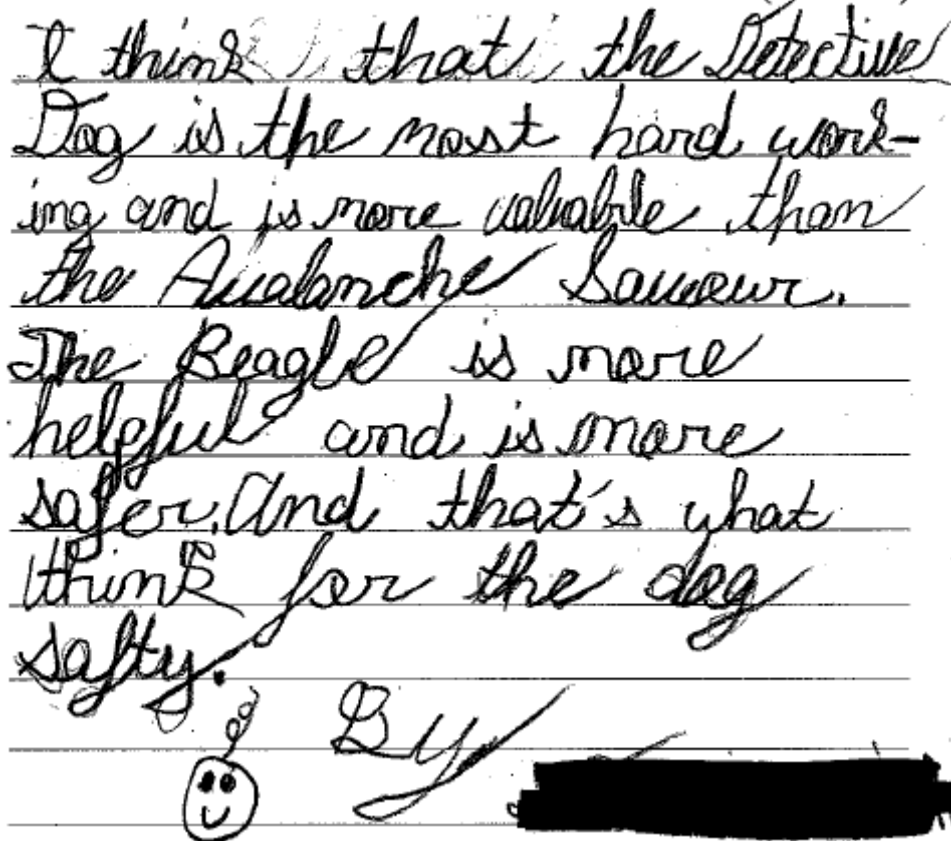 I think that the Detective
Dog is the most hard work-
ing and is more valuable than
the Avalanche Saveour.
The Beagle is more
helpful and is more
safer. And that's what
think for the dog
safty.
By